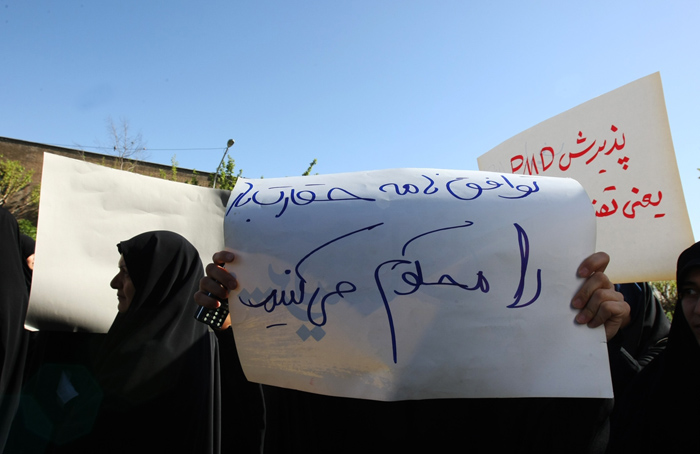 توافق نامه حقارت بار
را محکوم می کنیم
پذیرش PMD
یعنی